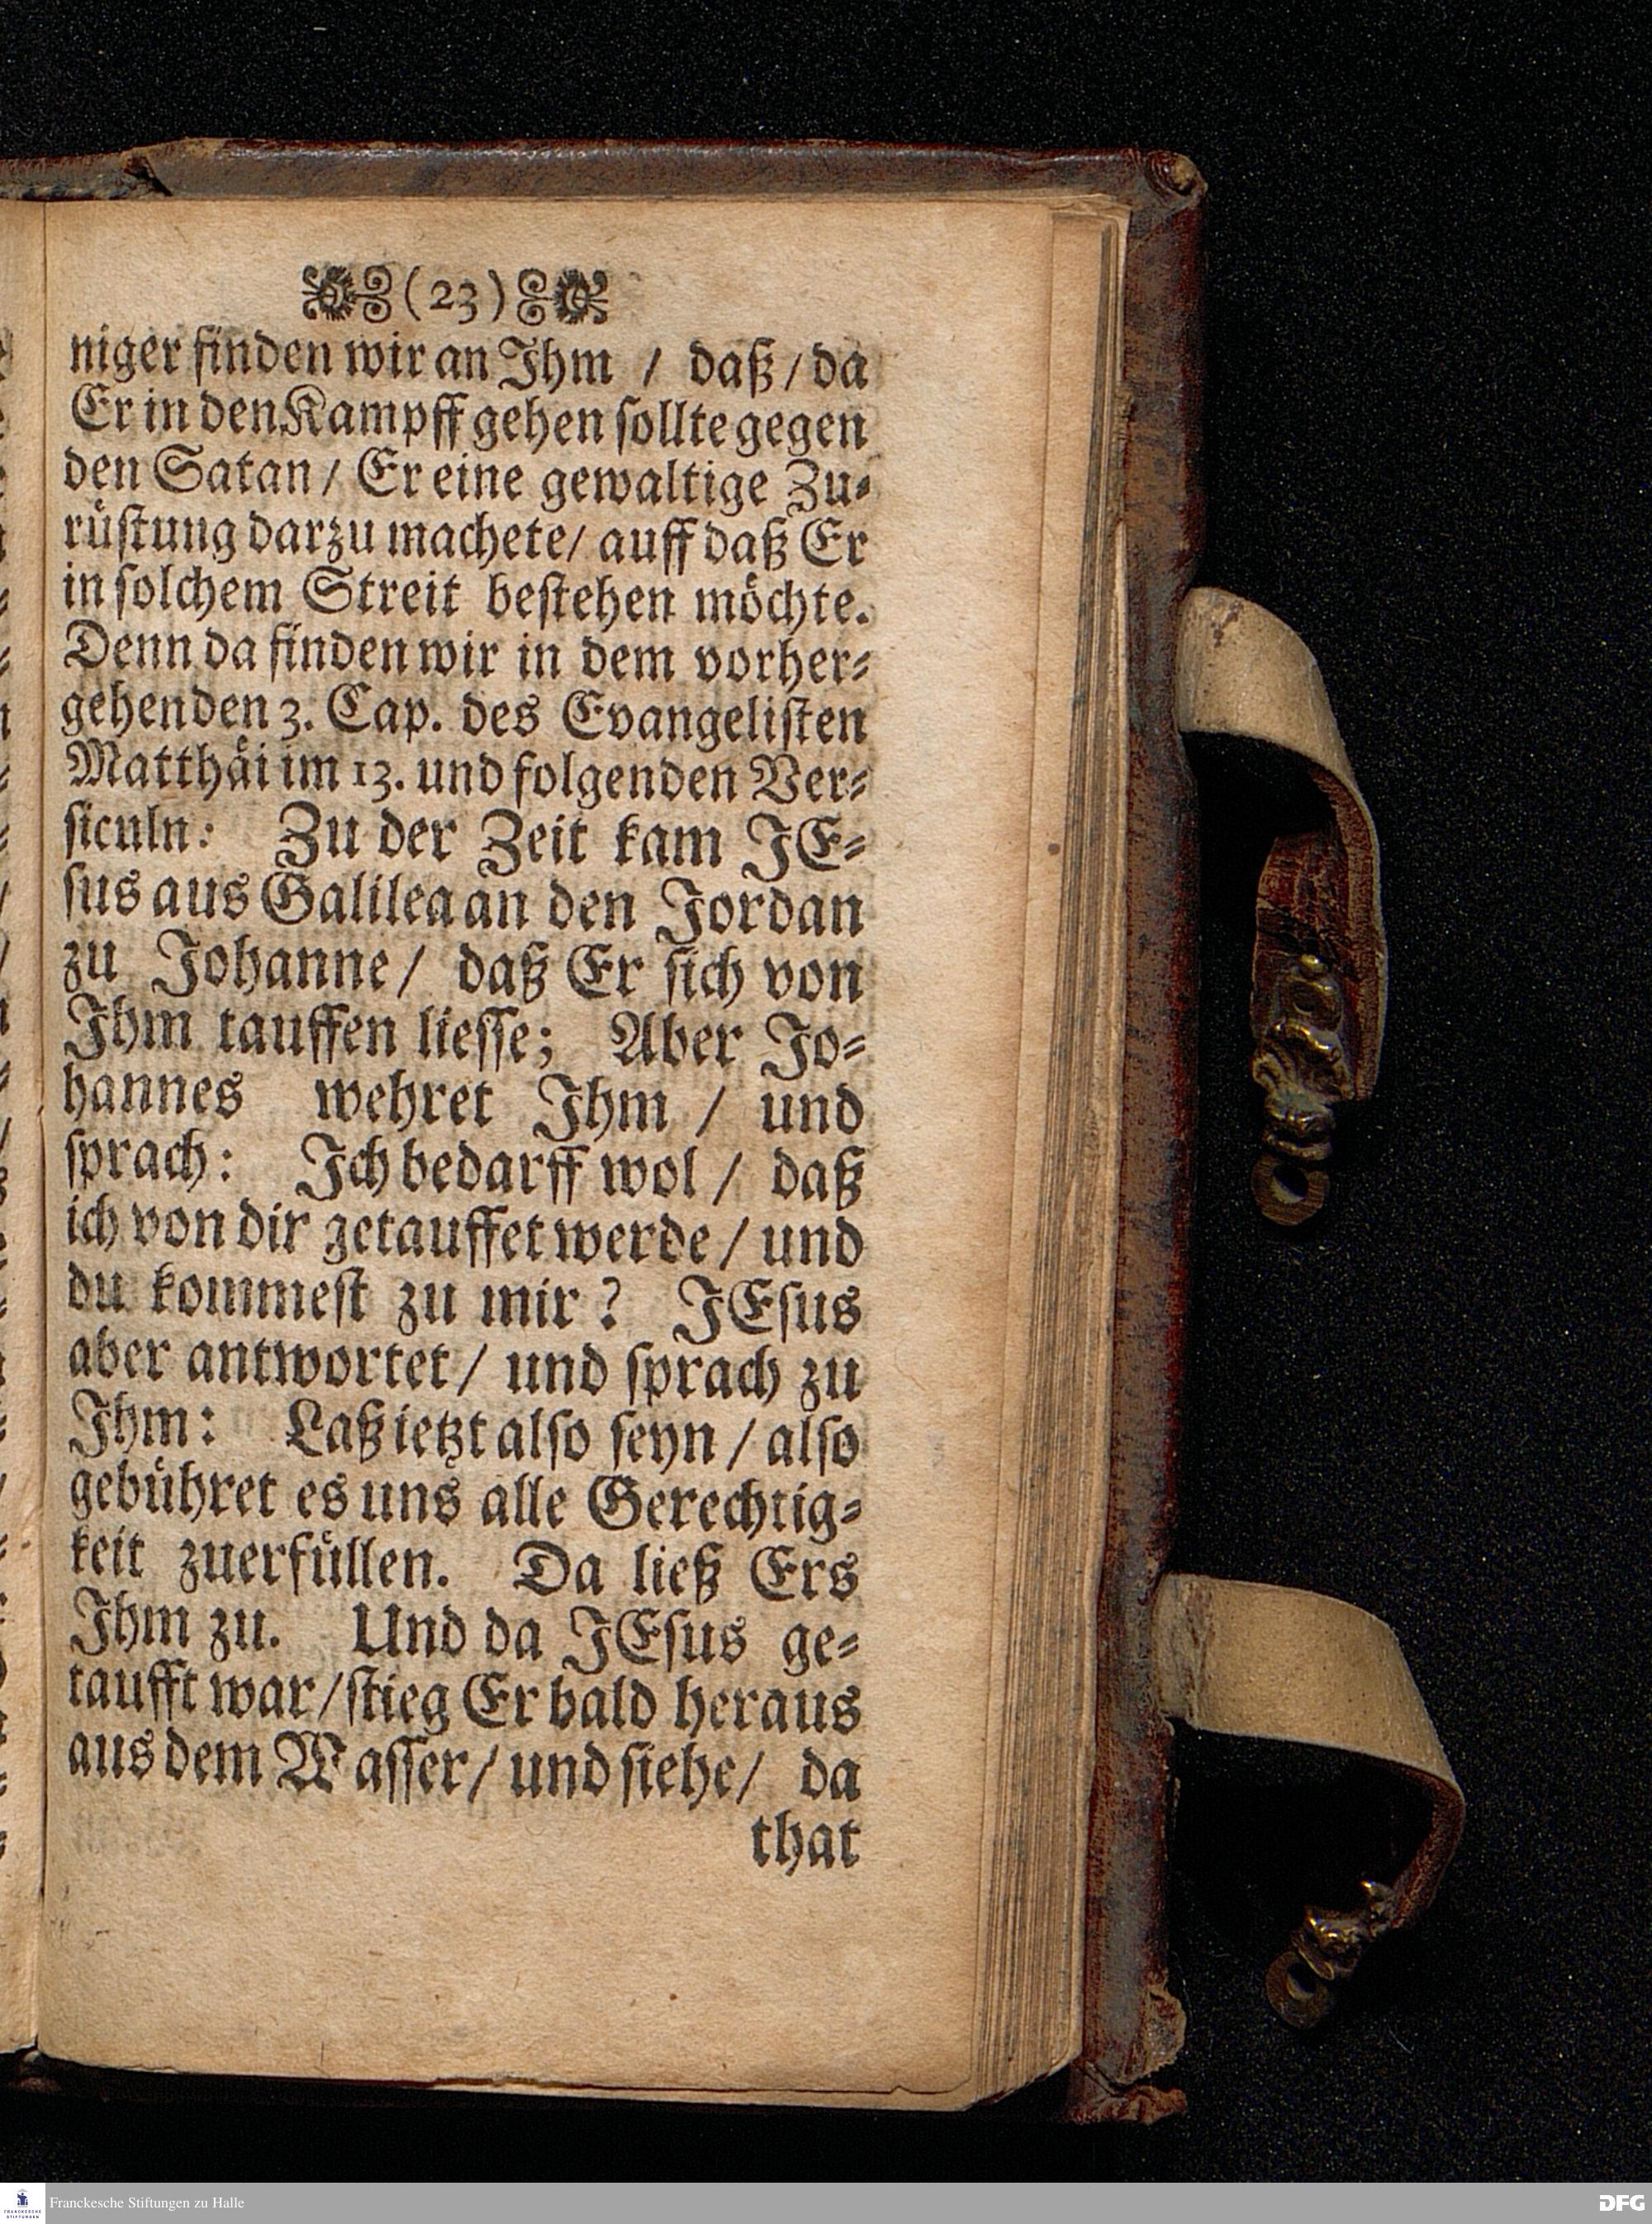 (23)
niger finden wir an Ihm / daß / da
Er in den Kampff gehen sollte gegen
den Satan / Er eine gewaltige Zu-
rüstung darzu machete / auff daß Er
in solchem Streit bestehen möchte.
Denn da finden wir in dem vorher-
gehenden 3. Cap. des Evangelisten
Matthäi im 13. und folgenden Ver-
siculn: Zu der Zeit kam JE-
sus aus Galilea an den Jordan
zu Johanne / daß Er sich von
Ihm tauffen liesse; Aber Jo-
hannes wehret Ihm / und
sprach: Ich bedarff wol / daß
ich von dir getauffet werde / und
du kommest zu mir? JEsus
aber antwortet / und sprach zu
Ihm: Laß ietzt also seyn / also
gebühret es uns alle Gerechtig-
keit zuerfüllen. Da ließ Ers
Ihm zu. Und da JEsus ge-
taufft war / stieg Er bald heraus
aus dem Wasser / und siehe / da
that
Franckesche Stiftungen zu Halle
DFG